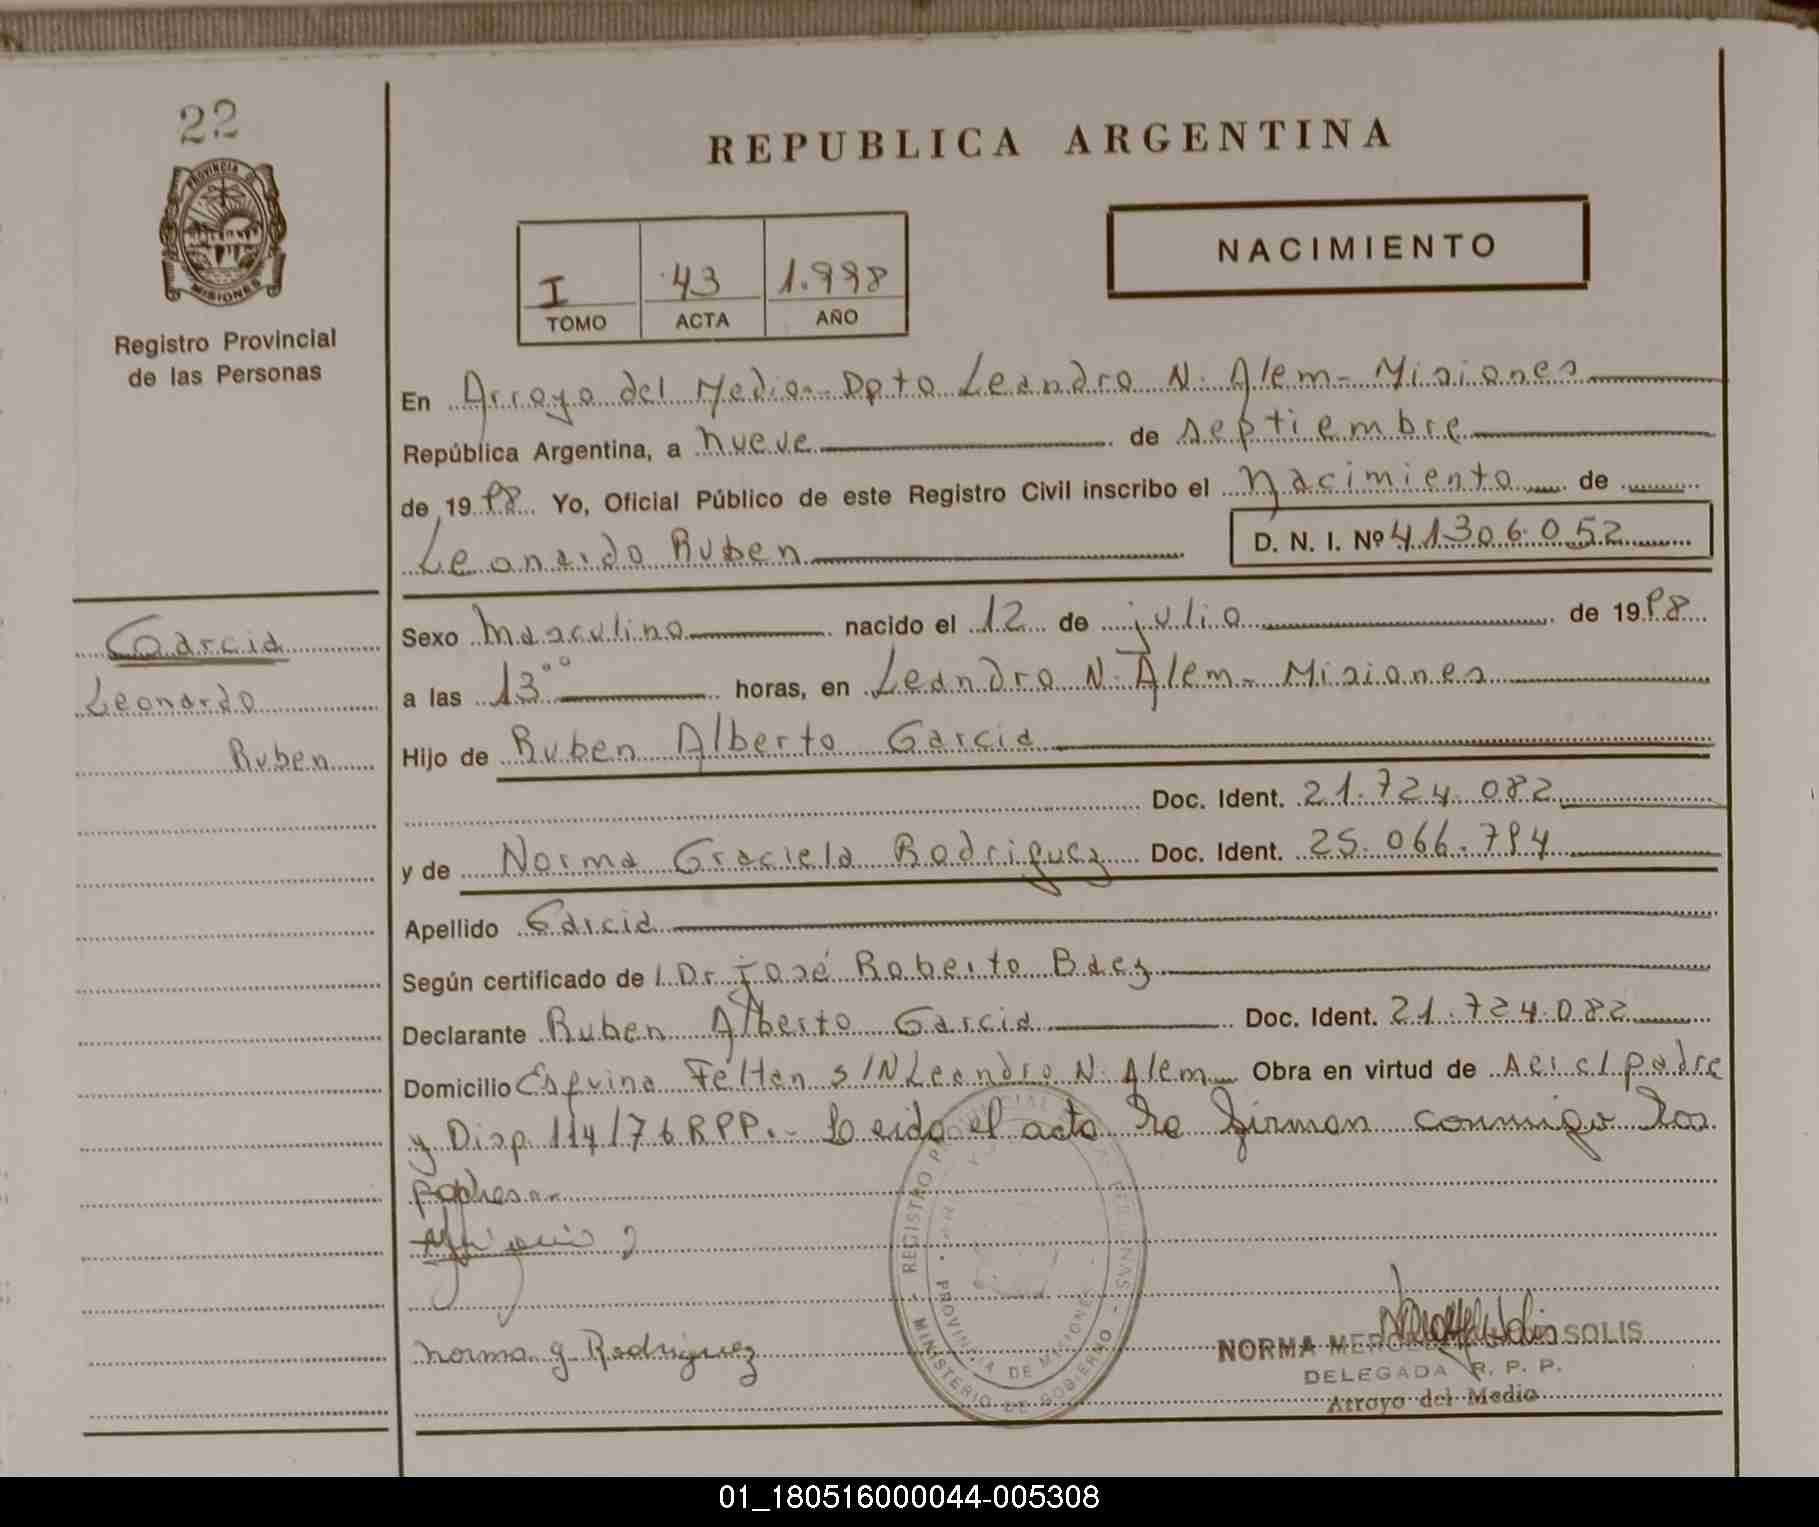 22
PROVINCIA DE
MISIONES
Registro Provincial
de las Personas
REPUBLICA ARGENTINA
I 43 1.998
TOMO ACTA AÑO
NACIMIENTO
En Arroyo del Medio - Dpto Leandro N. Alem - Misiones
República Argentina, a nueve de septiembre
de 1998 Yo, Oficial Público de este Registro Civil inscribo el Nacimiento de
Leonardo Ruben D. N. I. Nº 41306052
Garcia
Leonardo
Ruben
Sexo Masculino nacido el 12 de julio de 1998
a las 13°° horas, en Leandro N. Alem - Misiones
Hijo de Ruben Alberto Garcia
Doc. Ident. 21.724.082
y de Norma Graciela Rodriguez Doc. Ident. 25.066.794
Apellido Garcia
Según certificado de l Dr. José Roberto Baez
Declarante Ruben Alberto Garcia Doc. Ident. 21.724.082
Domicilio Esquina Felten S/N Leandro N. Alem Obra en virtud de Aci c/ padre
y Disp. 114/76 RPP.- Leida el acta la firman conmigo los
padres.
Norma g Rodriguez
REGISTRO PROVINCIAL DE LAS PERSONAS
MINISTERIO DE GOBIERNO
PROVINCIA DE MISIONES
NORMA MERCEDES SOLIS
DELEGADA R. P. P.
Arroyo del Medio
01_180516000044-005308